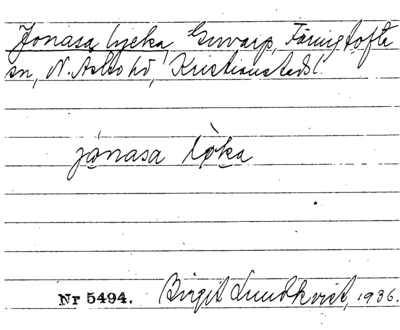 Jonasa lycka, Gurarp, Färingtofta
sn, N. Åsbo hd, Kristianstads l.
jonasa lo̤ka
Nr 5494. Birgit Lundkvist, 1936.